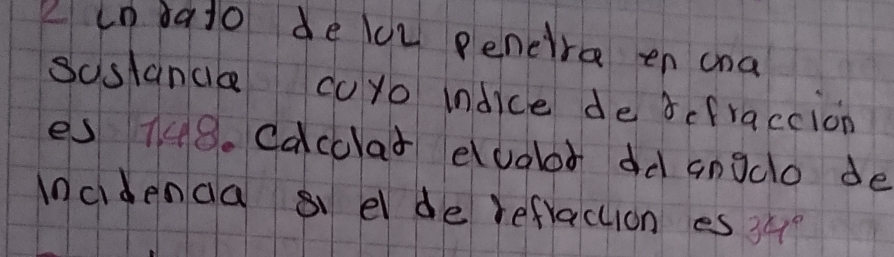 2 Un rayo de luz penetra en una
sustancia cuyo indice de refracción
es 1.48. Calcular el valor del angulo de
incidencia si el de refraccion es 34°